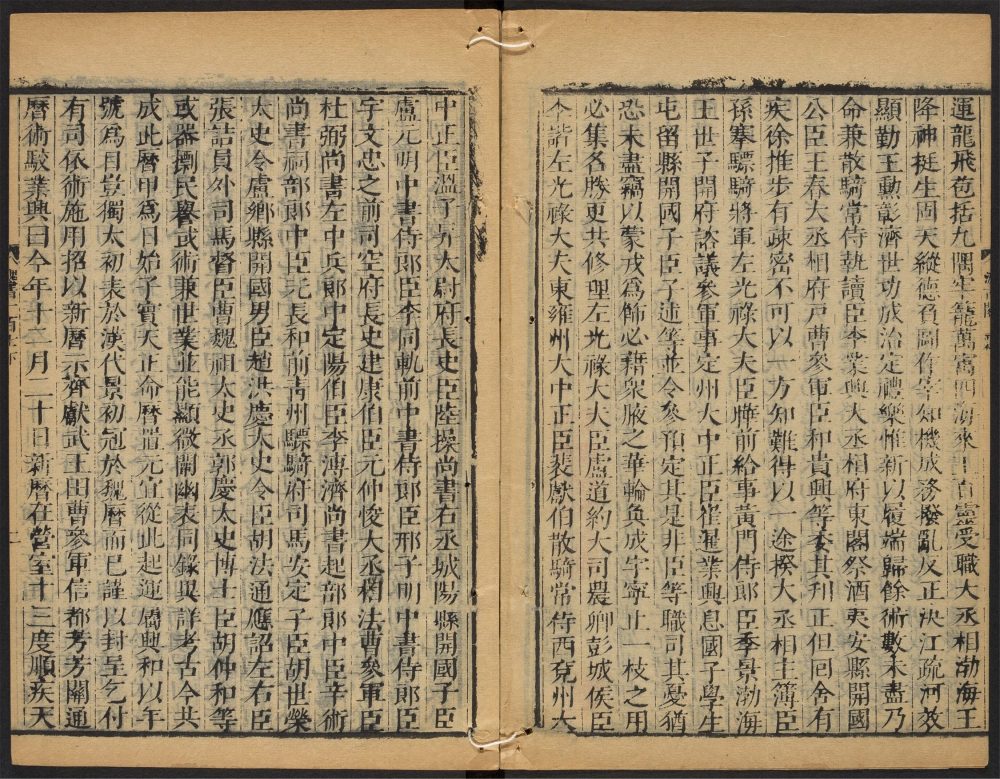 運龍飛苞括九隅牢籠萬㝢四海來王百靈受職大丞相渤海王
降神挺生固天縱德負圖作宰知機成務撥亂反正決江疏河效
顯勤王勳彰濟世功成治定禮樂惟新以履端歸餘術數未盡乃
命兼散騎常侍執讀臣李業興大丞相府東閣祭酒夷安縣開國
公臣王春大丞相府戸曹參軍臣和貴興等委其刋正但回舍有
疾徐推步有疎密不可以一方知難得以一途揆大丞相主簿臣
孫搴驃騎將軍左光祿大夫臣㬢前給事黃門侍郎臣季景渤海
王世子開府諮議參軍事定州大中正臣崔暹業興息國子學生
屯留縣開國子臣子述等並令參預定其是非臣等職司其憂猶
恐未盡竊以蒙戎爲飾必藉衆腋之華輪奐成宇寧止一枝之用
必集名勝更共修理左光祿大夫臣盧道約大司農卿彭城侯臣
李諧左光祿大夫東雍州大中正臣裴獻伯散騎常侍西兗州大
中正臣溫子昇太尉府長史臣陸操尚書右丞城陽縣開國子臣
盧元明中書侍郞臣李同軌前中書侍郞臣邢子明中書侍郞臣
宇文忠之前司空府長史建康伯臣元仲悛大丞相法曹參軍臣
杜弼尚書左中兵郞中定陽伯臣李溥濟尚書起部郞中臣辛術
尚書祠部郞中臣元長和前靑州驃騎府司馬安定子臣胡世榮
太史令盧鄕縣開國男臣趙洪慶太史令臣胡法通應詔左右臣
張喆員外司馬督臣曹魏祖太史丞郭慶太史博士臣胡仲和等
或器摽民譽或術兼世業並能顯微闡幽表同錄異詳考古今共
成此曆甲爲日始子實天正命曆置元宜從此起運屬興和以年
號爲目豈獨太初表於漢代景初冠於魏曆而已謹以封呈乞付
有司依術施用詔以新曆示齊獻武王田曹參軍信都芳芳關通
曆術駮業興曰今年十二月二十日新曆在營室十三度順疾天